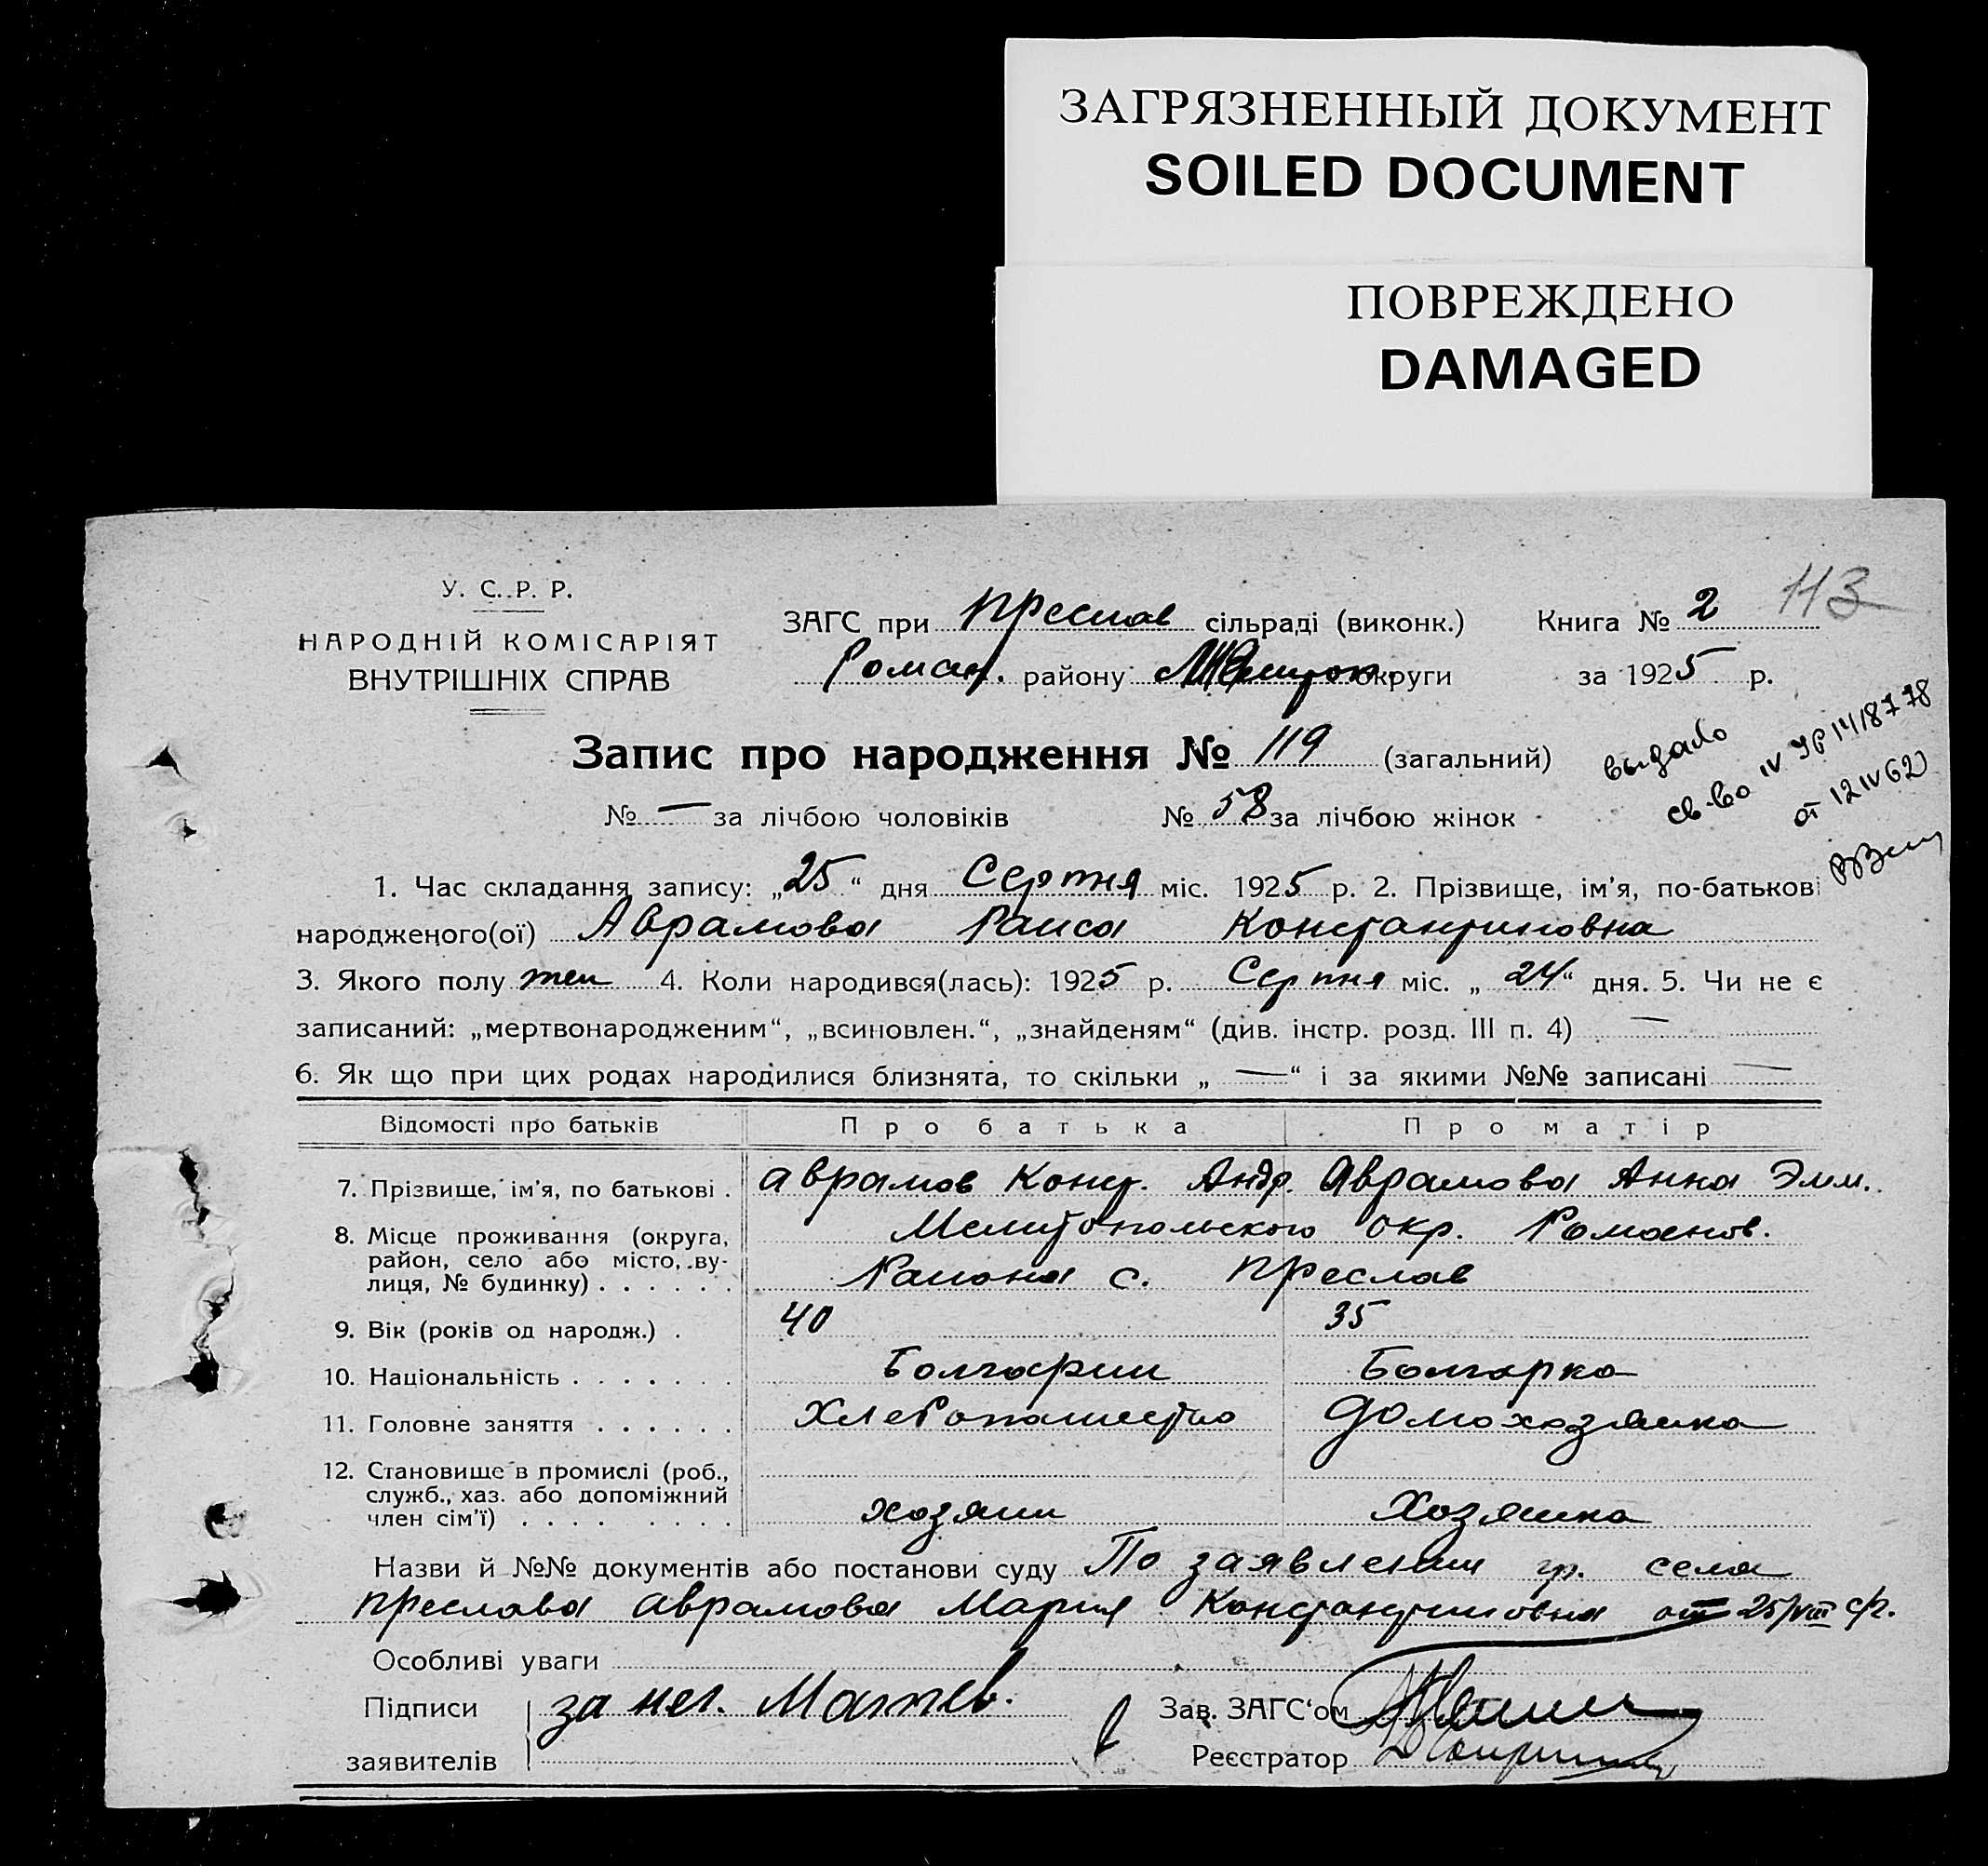 ЗАГРЯЗНЕННЫЙ ДОКУМЕНТ
SOILED DOCUMENT
ПОВРЕЖДЕНО
DAMAGED
113
У. С. Р. Р.
НАРОДНІЙ КОМІСАРІЯТ
ВНУТРІШНІХ СПРАВ
ЗАГС при Преслав сільраді (виконк.) Книга № 2
Роман. району округи за 1925 р.
Запис про народження № 119 (загальний)
№ — за лічбою чоловіків № 58 за лічбою жінок
выдано
св-во IV
от 12 IV 62
1. Час складання запису: „25“ дня Серпня міс. 1925 р. 2. Прізвище, ім’я, по-батькові
народженого(ої) Аврамова Раиса Константиновна
3. Якого полу жен 4. Коли народився(лась): 1925 р. Серпня міс. „24“ дня. 5. Чи не є
записаний: „мертвонародженим“, „всиновлен.“, „знайденям“ (див. інстр. розд. III п. 4) —
6. Як що при цих родах народилися близнята, то скільки „ — “ і за якими №№ записані —
Відомості про батьків Про батька Про матір
7. Прізвище, ім’я, по батькові . Аврамов Конст. Андр. Аврамова Анна Эмм.
8. Місце проживання (округа, район, село або місто, вулиця, № будинку) . . . . . .
Мелитопольского окр. Романов.
Района с. Преслав
9. Вік (років од народж.) . 40 35
10. Національність . . . . . . . Болгарин Болгарка
11. Головне заняття . . . . . . Хлебопашество Домохозяйка
12. Становище в промислі (роб.,
служб., хаз. або допоміжний
член сім’ї) . . . . . . . . Хозяин Хозяйка
Назви й №№ документів або постанови суду По заявлении гр. села
Преслава Аврамова Мария Константиновна от 25/VIII с/г.
Особливі уваги
Підписи за нег. Зав. ЗАГС‘ом
заявителів Реєстратор